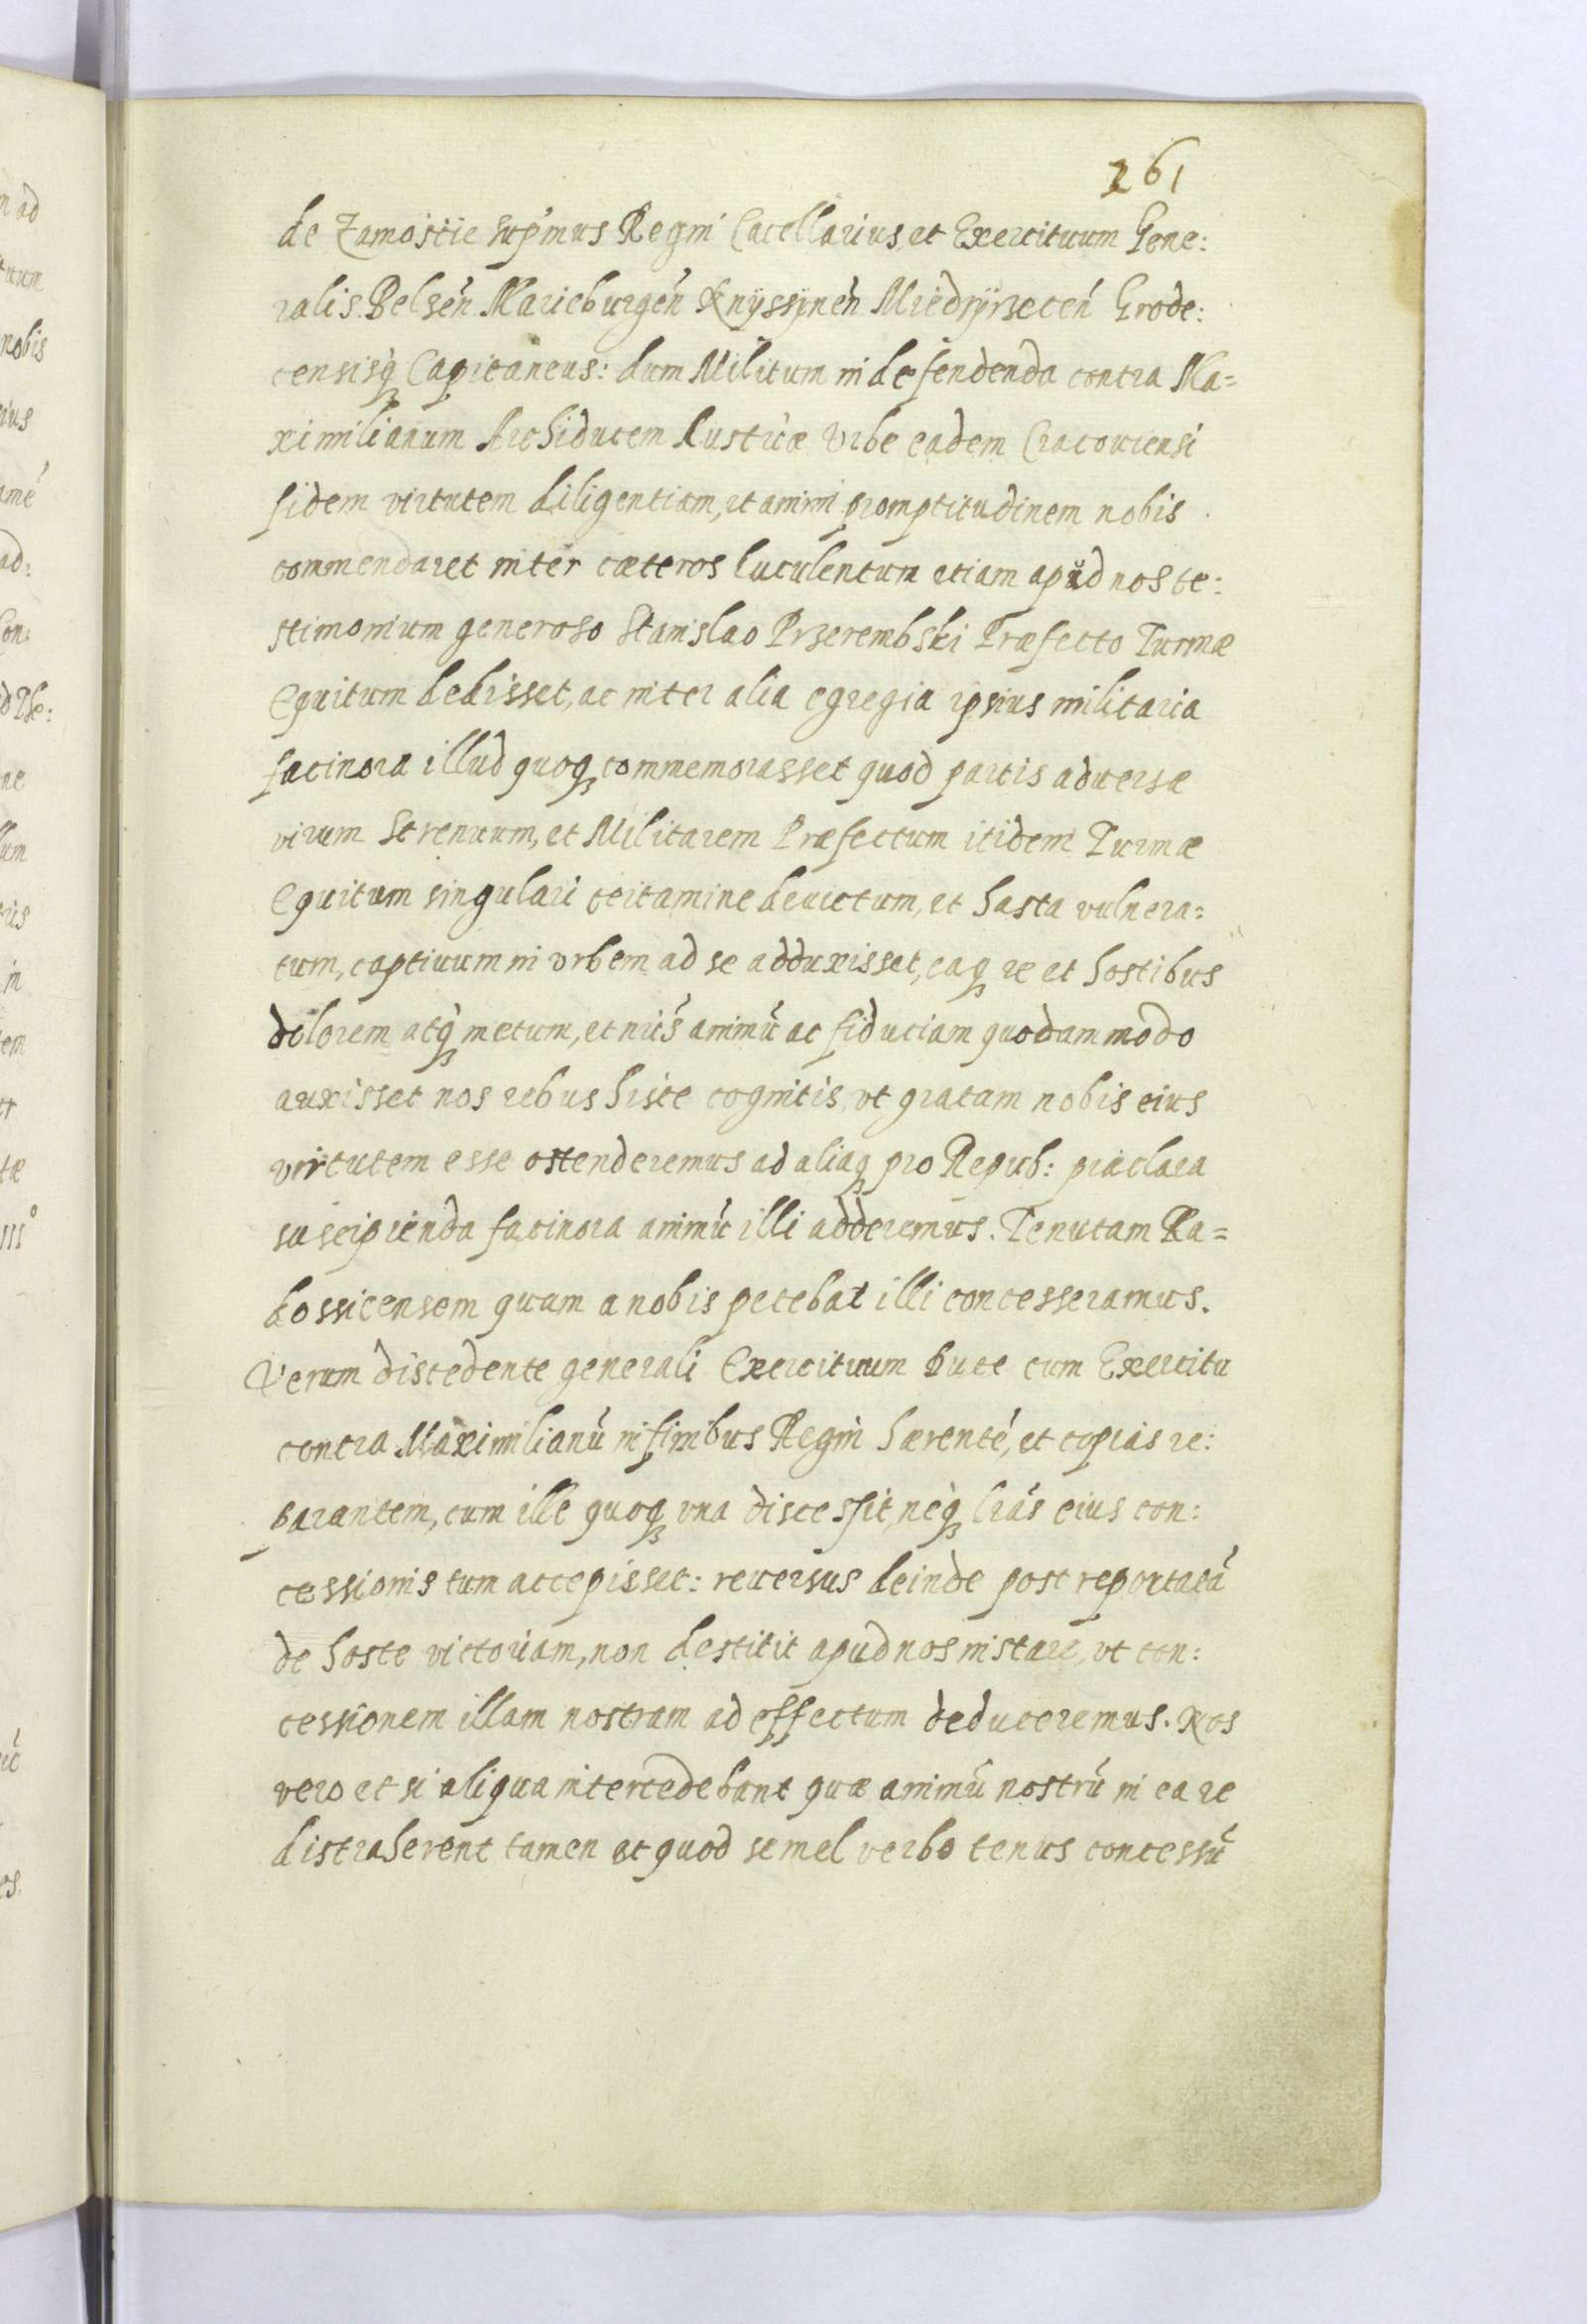 261
de Zamoście sup̄mus Regni Cācellarius, et Exercituum Gene:
ralis Belzen̄ Marieburgen̄ Knÿssÿnen̄ Miedzÿrzecen̄ Grode:
censisq̨ Capitaneus: dum Militum in defendenda contra Ma=
ximilianum Archiducem Austriæ Vrbe eadem Cracouiensi
fidem virtutem diligentiam, et animi promptitudinem nobis
commendaret inter cæteros luculentum etiam apŭd nos te:
stimonium generoso Stanislao Przerembski Præfecto Turmæ
Equitum dedisset, ac inter alia egregia ipsius militaria
facinora illud quoq̨ commemorasset quod partis aduersæ
virum strenuum, et Militarem Præfectum itidem Turmæ
Equitum singulari certamine deuictum, et hasta vulnera=
tum, captiuum in vrbem ad se adduxisset, eaq̨ re et hostibus
dolorem atq̨ metum, et nr̄is animū ac fiduciam quodammodo
auxisset nos rebus hisce cognitis, vt gratam nobis eius
virtutem esse ostenderemus ad aliaq̨ pro Repub: præclara
suscipienda facinora animū illi adderemus. Tenutam Ra=
dossicensem quam a nobis petebat illi concesseramus.
Verum discedente generali Exercituum Duce cum Exercitu
contra Maximilianū in finibus Regni hærentē, et copias re:
parantem, cum ille quoq̨ vna discessit, neq̨ lr̄as eius con:
cessionis tum accepisset: reuersus deinde post reportatā
de hoste victoriam, non destitit apud nos instare, vt con:
cessionem illam nostram ad effectum deduceremus. Nos
vero et si aliqua intercedebant quæ animū nostrū in ea re
distraherent tamen et quod semel verbo tenus concessū